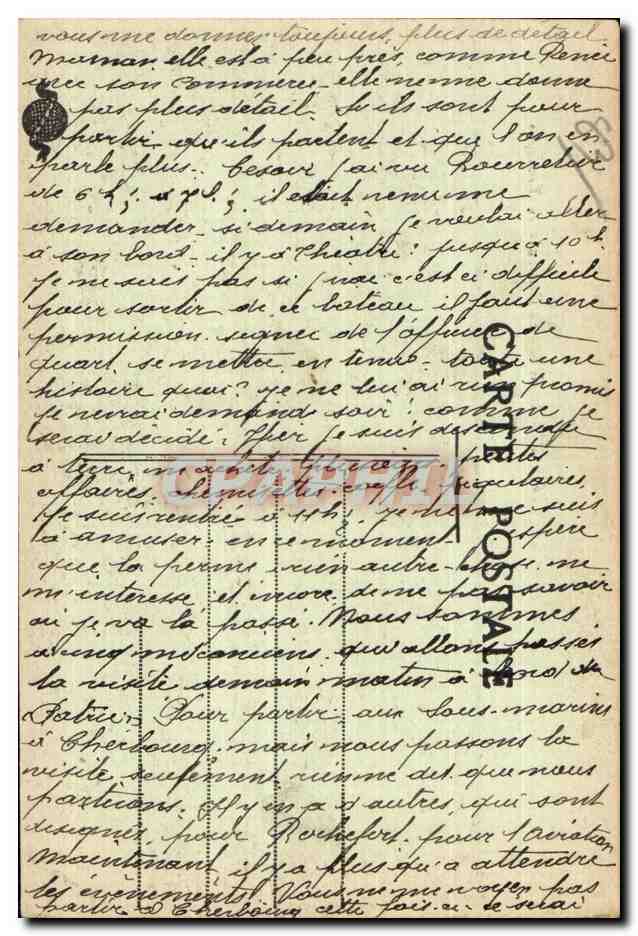 vous me donner toujours plus de détail
Maman elle est à peu près, comme Renée
avec son commerce elle ne me donne
pas plus detail. Si ils sont pour
partir qu'ils partent et que l'on en
parle plus. besoir j'ai vu
de 6h à 7h; il etait venu me
demander si demain je voulai aller
à son bord il y a théatre jusqu'à 10h.
Je ne sais pas si j'irai c'est si difficile
pour sortir de ce bateau il faut une
permission signer de l'officier de
quart se mettre en tenue toute une
histoire quoi? je ne lui ai rien promis
Je verrai demain soir comme je
serai décidé. Hier je suis descendu
à terre petites
affaires, chemisettes
Je suis rentré à 11h je ne me suis
à amuser en ce moment j'espère
que la perme rien autre chose ne
m'interesse et encore de ne pas savoir
où je va là passé. Nous sommes
cinq mécaniciens qui allons passés
la visite demain matin à bord du
Patrie Pour partir aux Sous-marins
à Cherbourg mais nous passons la
visite seulement rien me dit que nous
partirons. Il y en a d'autres qui sont
désignés pour Rochefort pour l'aviation
Maintenant il y a plus qu'a attendre
les évènements Vous ne me voyez pas
partir à Cherbourg cette fois-ci je serai
CARTE POSTALE
CPARAMA